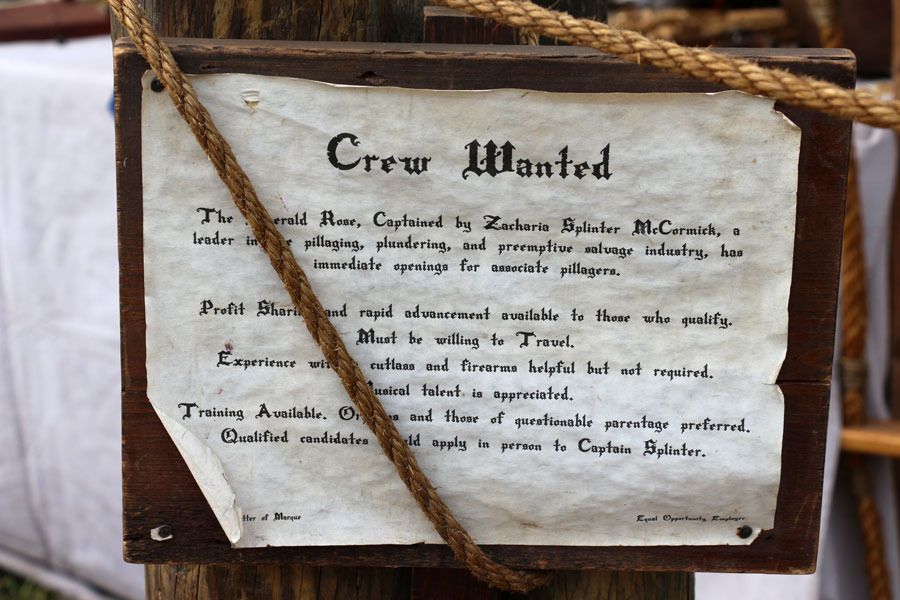 Crew Wanted
The erald Rose, Captained by Zacharia Splinter McCormick, a
leader in pillaging, plundering, and preemptive salvage industry, has
immediate openings for associate pillagers.
Profit Sharing and rapid advancement available to those who qualify.
Must be willing to Travel.
Experience with cutlass and firearms helpful but not required.
Musical talent is appreciated.
Training Available. Orphans and those of questionable parentage preferred.
Qualified candidates should apply in person to Captain Splinter.
tter of Marque
Equal Opportunity Employer